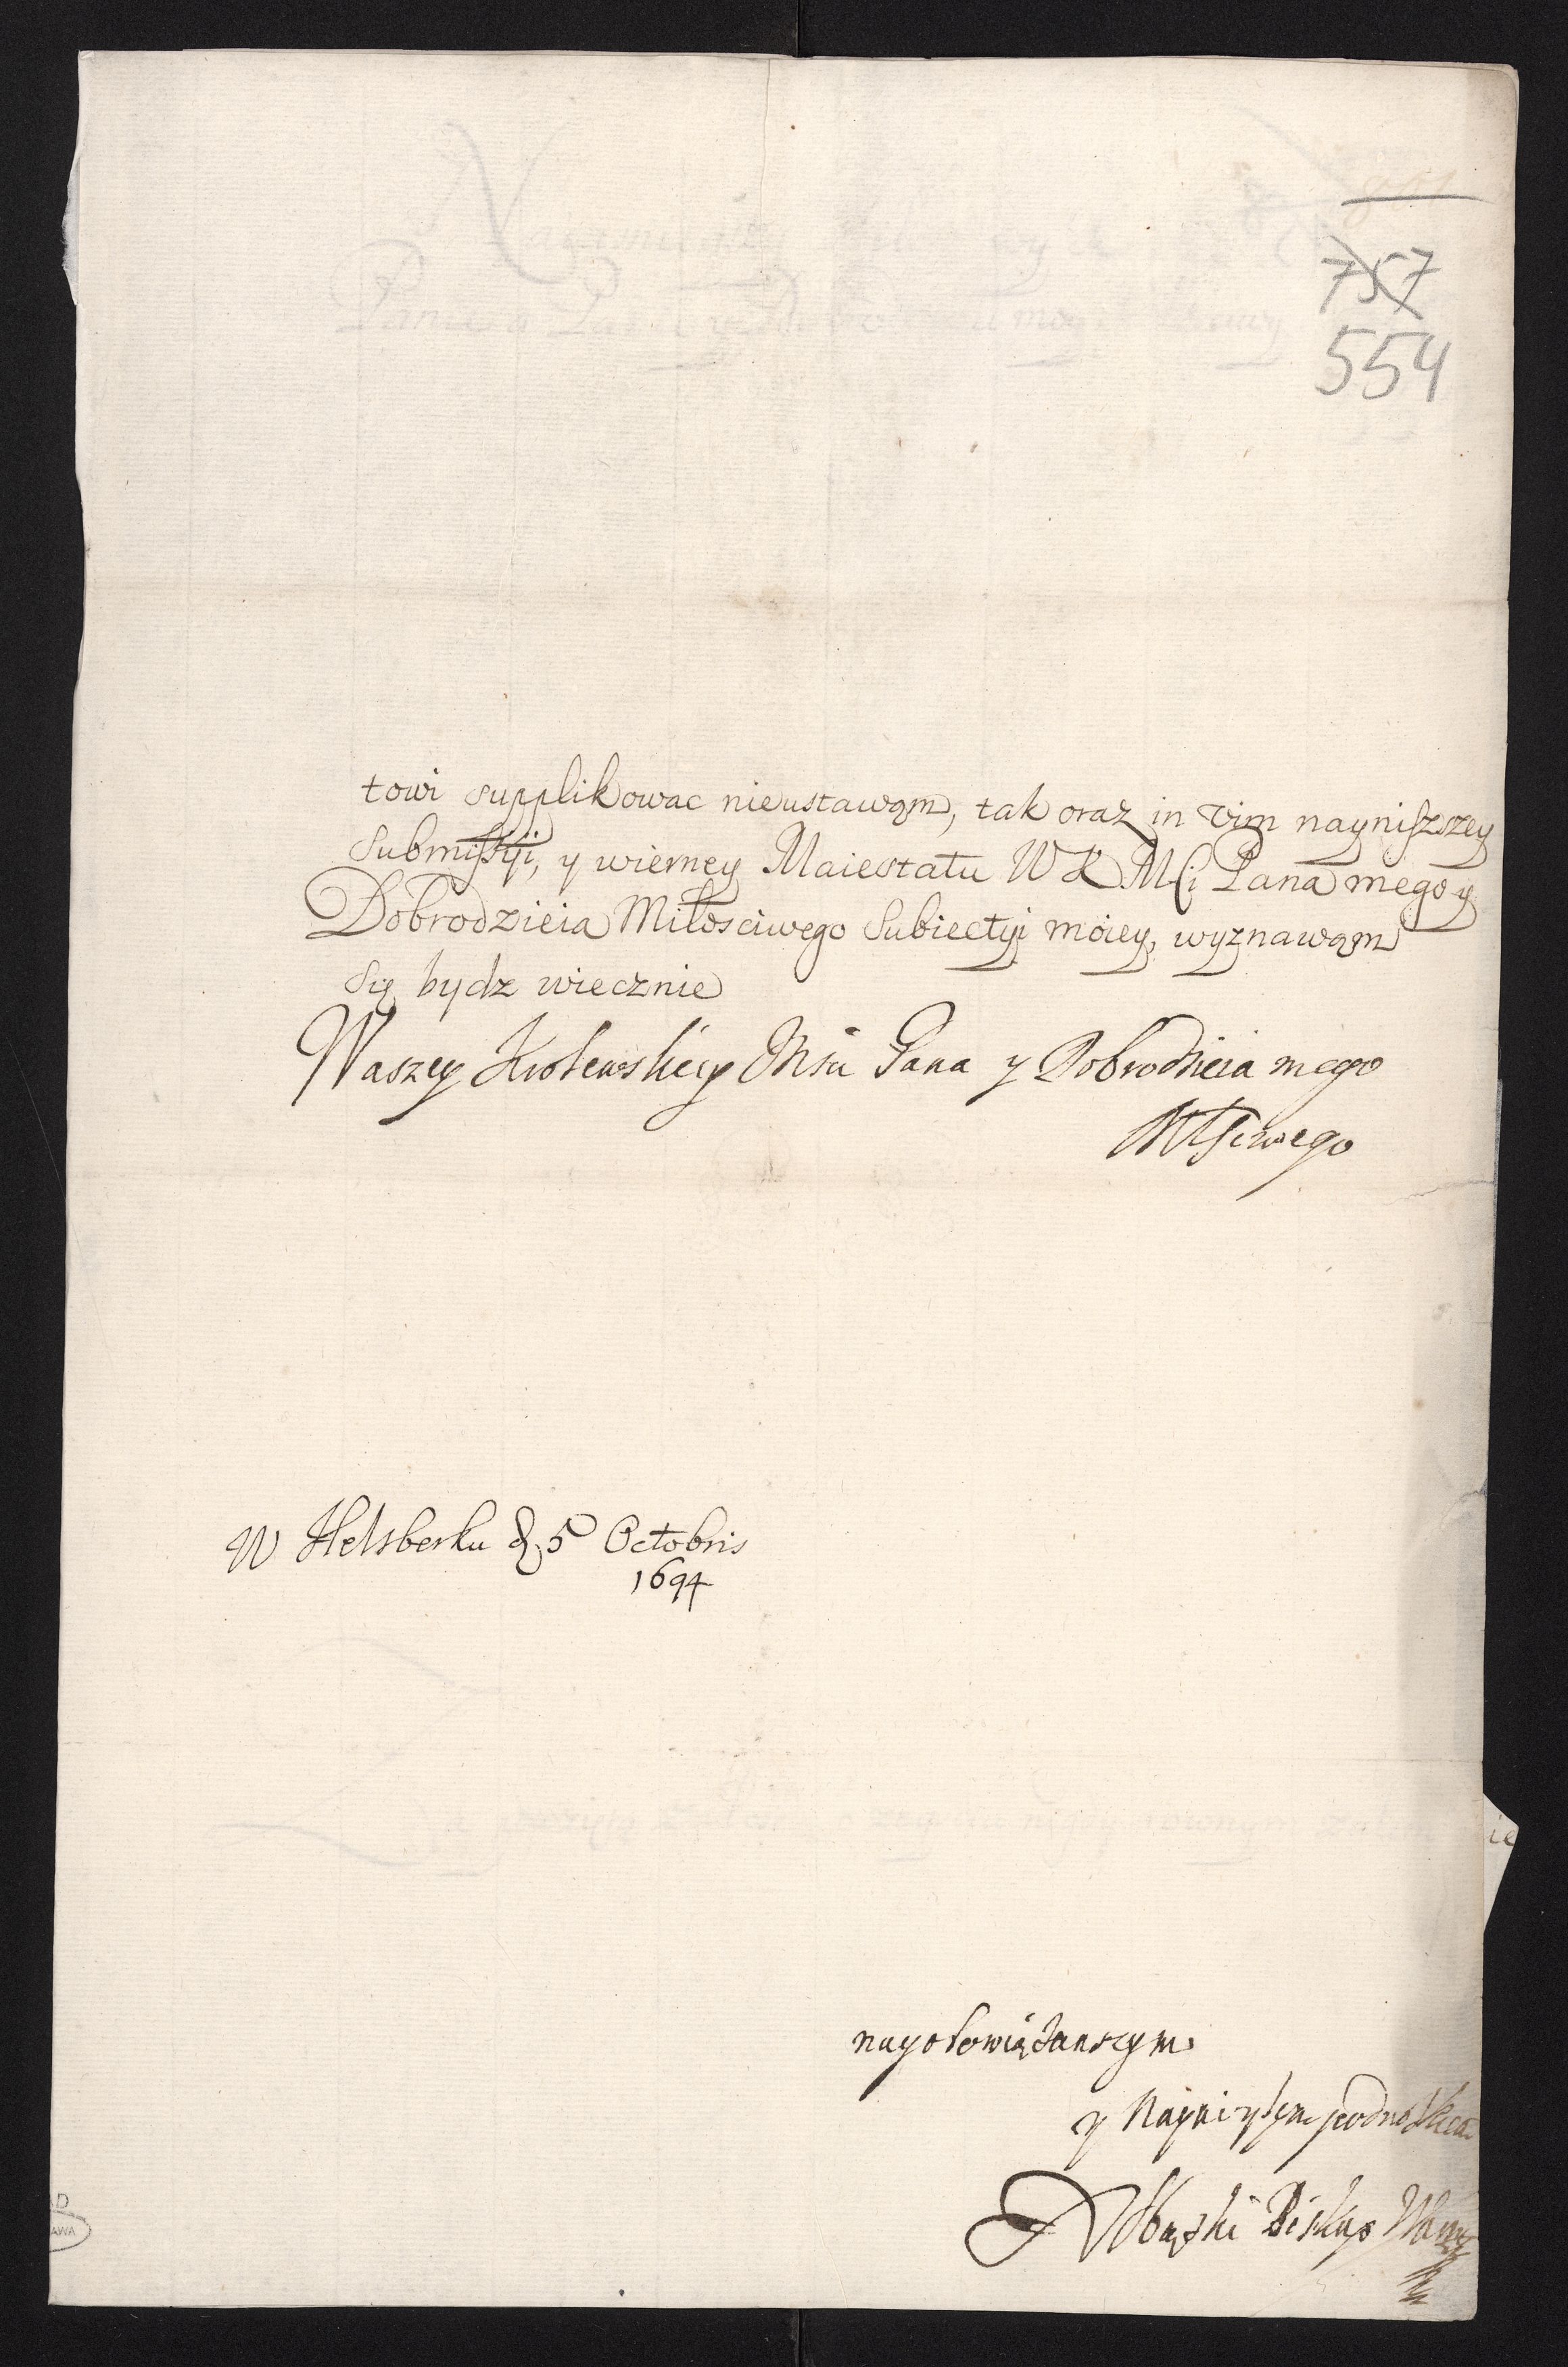 757
554
towi supplikowac nieustawąm, tak oraz in vim nayniszszey
submissyi, y wierney Maiestatu W K MCi Pana mego y
Dobrodzieia Miłosciwego Subiectyi moiey, wyznawąm
się bydz wiecznie
Waszey Krolewskiey Msci Pana y Dobrodzieia mego
Młsciwego
W Helsberku d. 5 Octobris
1694
nayobowiązanszym
y Nayniższym podnoszkiem
Zbąski Biskup Warm